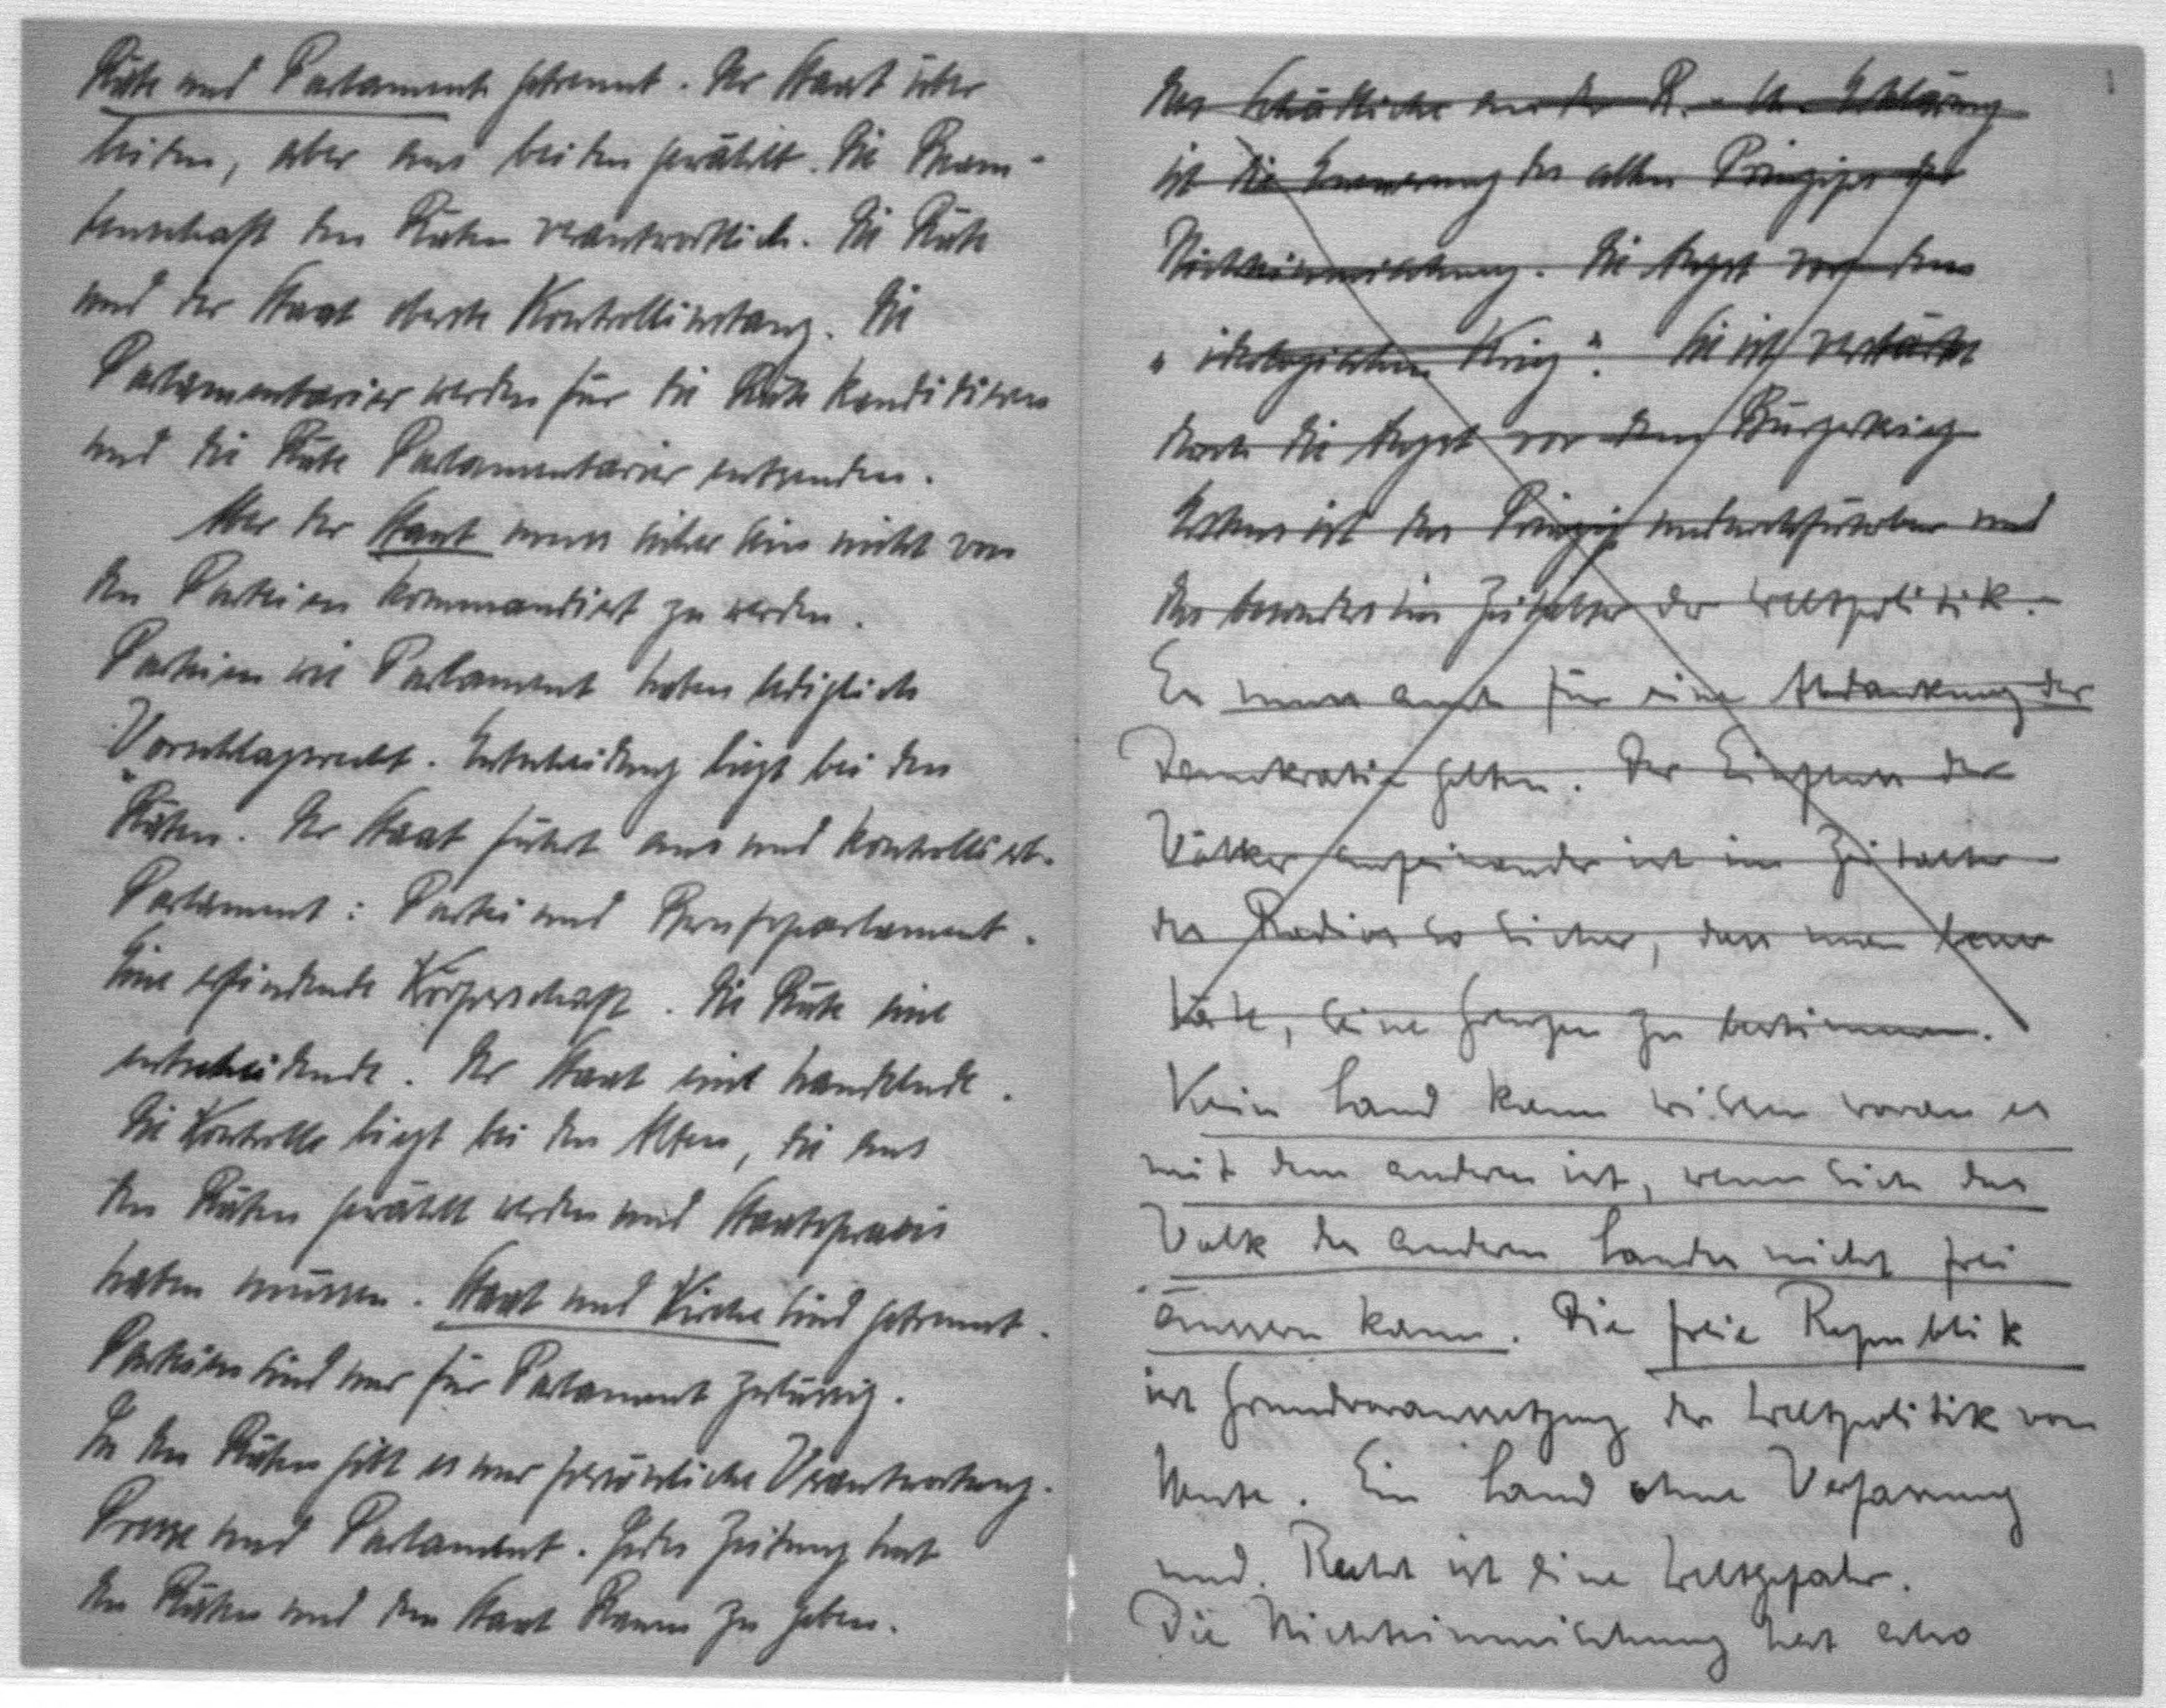 Räte und Parlament getrennt. Der Staat über
beiden, aber aus beiden gewählt. Die Beam-
tenschaft den Räten verantwortlich. Die Räte
und der Staat oberste Kontrollinstanz. Die
Parlamentarier werden für die Räte kandidieren
und die Räte Parlamentarier entsenden.
Aber der Staat muss sicher sein nicht von
den Parteien kommandiert zu werden.
Parteien wie Parlament haben lediglich
Vorschlagsrecht. Entscheidung liegt bei den
Räten. Der Staat führt aus und kontrolliert.
Parlament: Partei und Berufsparlament.
Eine erfindende Körperschaft. Die Räte eine
entscheidende. Der Staat eine handelnde.
Die Kontrolle liegt bei den Alten, die aus
den Räten gewählt werden und Staatspraxis
haben müssen. Staat und Kirche sind getrennt.
Parteien sind nur für Parlament zulässig.
In den Räten gibt es nur persönliche Verantwortung.
Presse und Parlament. Jede Zeitung hat
den Räten und dem Staat Raum zu geben.
Das Schädliche an der R. - U. Erklärung
ist die Erneuerung des alten Prinzips der
Nichteinmischung. Die Angst vor dem
"ideologischen Krieg". Sie ist verstärkt
durch die Angst vor dem Bürgerkrieg
Erstens ist das Prinzip undurchführbar und
das besonders im Zeitalter der Weltpolitik.
Es muss auch für eine Abdankung der
Demokratie gelten. Der Einfluss der
Völker aufeinander ist im Zeitalter
des Radios so sicher, dass man besser
täte, seine Grenzen zu bestimmen.
Kein Land kann wissen woran es
mit dem anderen ist, wenn sich das
Volk des anderen Landes nicht frei
äussern kann. Die freie Republik
ist Grundvoraussetzung der Weltpolitik von
heute. Ein Land ohne Verfassung
und Recht ist eine Weltgefahr.
Die Nichteinmischung hat also